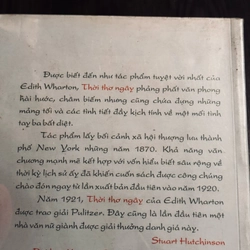 Được biết đến như tác phẩm tuyệt vời nhất của
Edith Wharton, Thời thơ ngây phảng phất văn phong
hài hước, châm biếm nhưng cũng chứa đựng những
mảng tối và các tình tiết đầy kịch tính về một mối tình
tay ba bất diệt.
Tác phẩm lấy bối cảnh xã hội thượng lưu thành
phố New York những năm 1870. Khả năng văn
chương mê mê kết hợp với vốn hiểu biết sâu rộng về
thời kỳ lịch sử ấy đã khiến cuốn sách được công chúng
chào đón ngay từ lần xuất bản đầu tiên vào năm 1920.
Năm 1921, Thời thơ ngây của Edith Wharton
được trao giải Pulitzer. Đây cũng là lần đầu tiên một
nhà văn nữ giành được giải thưởng danh giá này.
Stuart Hutchinson